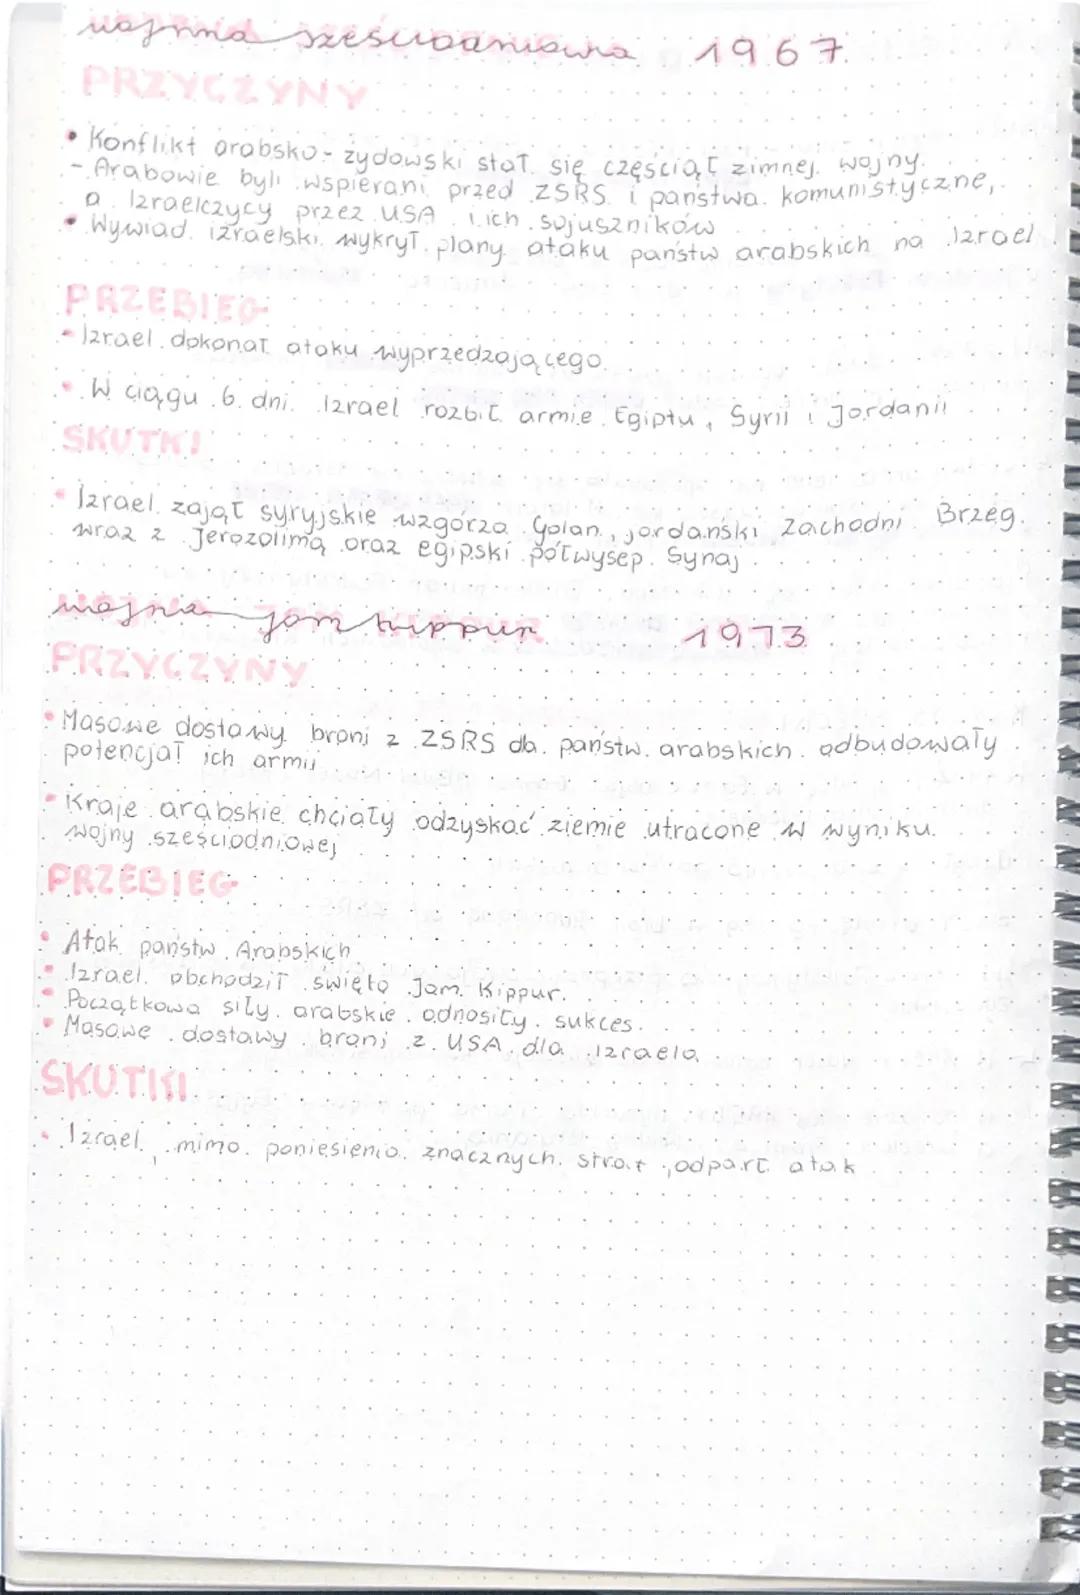 wojnna sześciodniowa 1967
PRZYCZYNY
• Konflikt arabsko-żydowski stał się częściął zimnej wojny.
- Arabowie byli wspierani przed ZSRS i państwa komunistyczne,
a Izraelczycy przez USA i ich sojuszników
• Wywiad izraelski wykrył plany ataku państw arabskich na Izrael
PRZEBIEG
- Izrael dokonał ataku wyprzedzającego
• W ciągu 6 dni Izrael rozbił armie Egiptu, Syrii i Jordanii
SKUTKI
• Izrael zajął syryjskie wzgórza Golan, jordański Zachodni Brzeg
wraz z Jerozolimą oraz egipski półwysep Synaj
wojna jom kippur 1973
PRZYCZYNY
• Masowe dostawy broni z ZSRS dla państw arabskich odbudowały
potencjał ich armii
• Kraje arabskie chciały odzyskać ziemie utracone w wyniku
wojny sześciodniowej
PRZEBIEG
• Atak państw Arabskich
• Izrael obchodził święto Jom Kippur.
• Początkowo siły arabskie odnosiły sukces.
• Masowe dostawy broni z USA dla Izraela
SKUTKI
• Izrael, mimo poniesienia znacznych strat, odparł atak